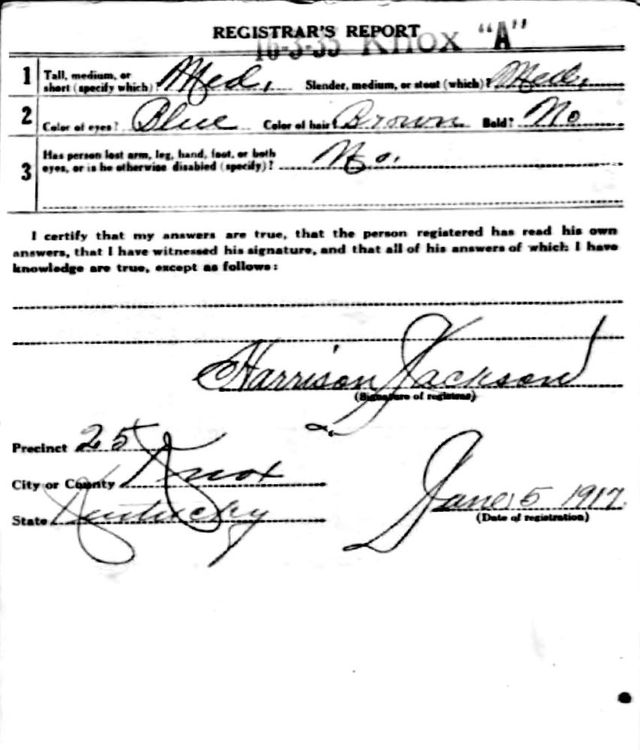 REGISTRAR'S REPORT
16-3-35 Knox "A"
1 Tall, medium, or short (specify which)? Med. Slender, medium, or stout (which)? Med.
2 Color of eyes? Blue Color of hair? Brown Bald? No
3 Has person lost arm, leg, hand, foot, or both
eyes, or is he otherwise disabled (specify)? No.
I certify that my answers are true, that the person registered has read his own
answers, that I have witnessed his signature, and that all of his answers of which I have
knowledge are true, except as follows:
Harrison Jackson
(Signature of registrar)
Precinct 25
City or County Knox
State Kentucky
June 5 1917.
(Date of registration)